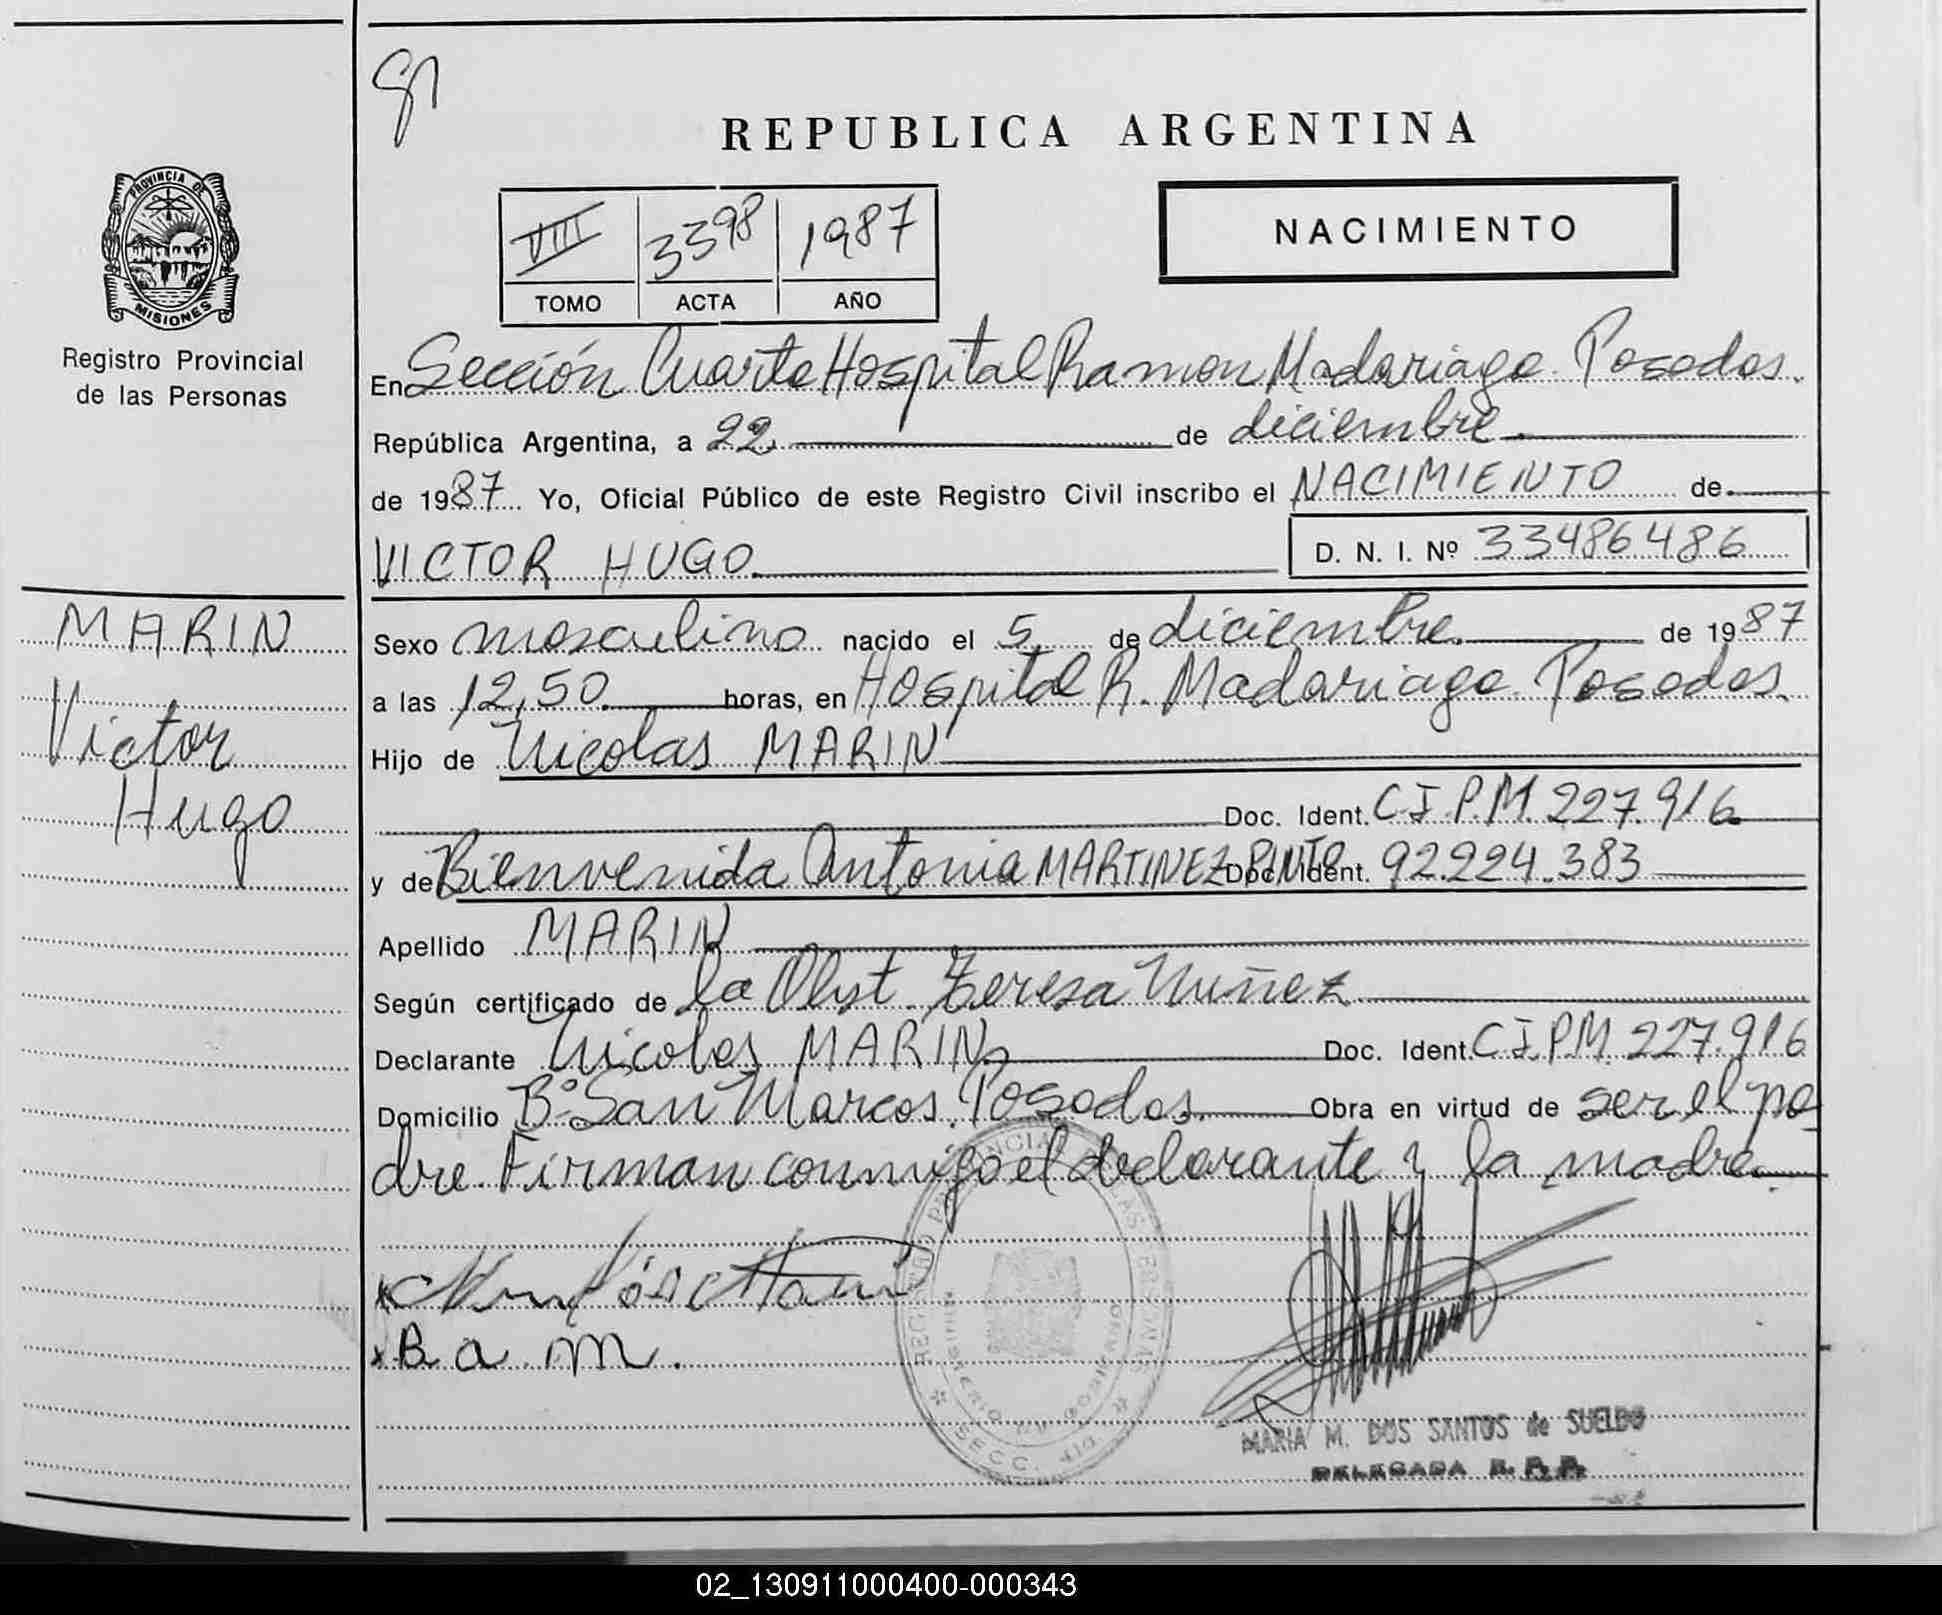 REPUBLICA ARGENTINA
PROVINCIA DE
MISIONES
Registro Provincial
de las Personas
VIII 3398 1987
TOMO ACTA AÑO
NACIMIENTO
En Sección Cuarta Hospital Ramon Madariaga. Posadas.
República Argentina, a 22 de diciembre
de 1987. Yo, Oficial Público de este Registro Civil inscribo el NACIMIENTO de
VICTOR HUGO
D. N. I. Nº 33486486
MARIN
Victor
Hugo
Sexo masculino nacido el 5 de diciembre de 1987
a las 12,50 horas, en Hospital R. Madariaga. Posadas.
Hijo de Nicolas MARIN
Doc. Ident. C.I.P.M. 227.916
y de Bienvenida Antonia MARTINEZ PINTO Doc. Ident. 92.224.383
Apellido MARIN
Según certificado de la Obst. Teresa Nuñez
Declarante Nicolas MARIN Doc. Ident. C.I.P.M. 227.916
Domicilio Bº San Marcos. Posadas. Obra en virtud de ser el pa
dre. Firman conmigo el declarante y la madre.
x B a m.
REGISTRO PROVINCIAL DE LAS PERSONAS
MINISTERIO DE GOBIERNO
SECC. 4ta.
MARIA M. DOS SANTOS de SUELDO
DELEGADA R. P. P.
02_130911000400-000343